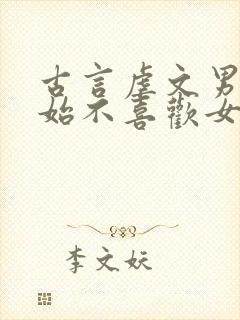 古言虐文男
始不喜歡女
李文妖